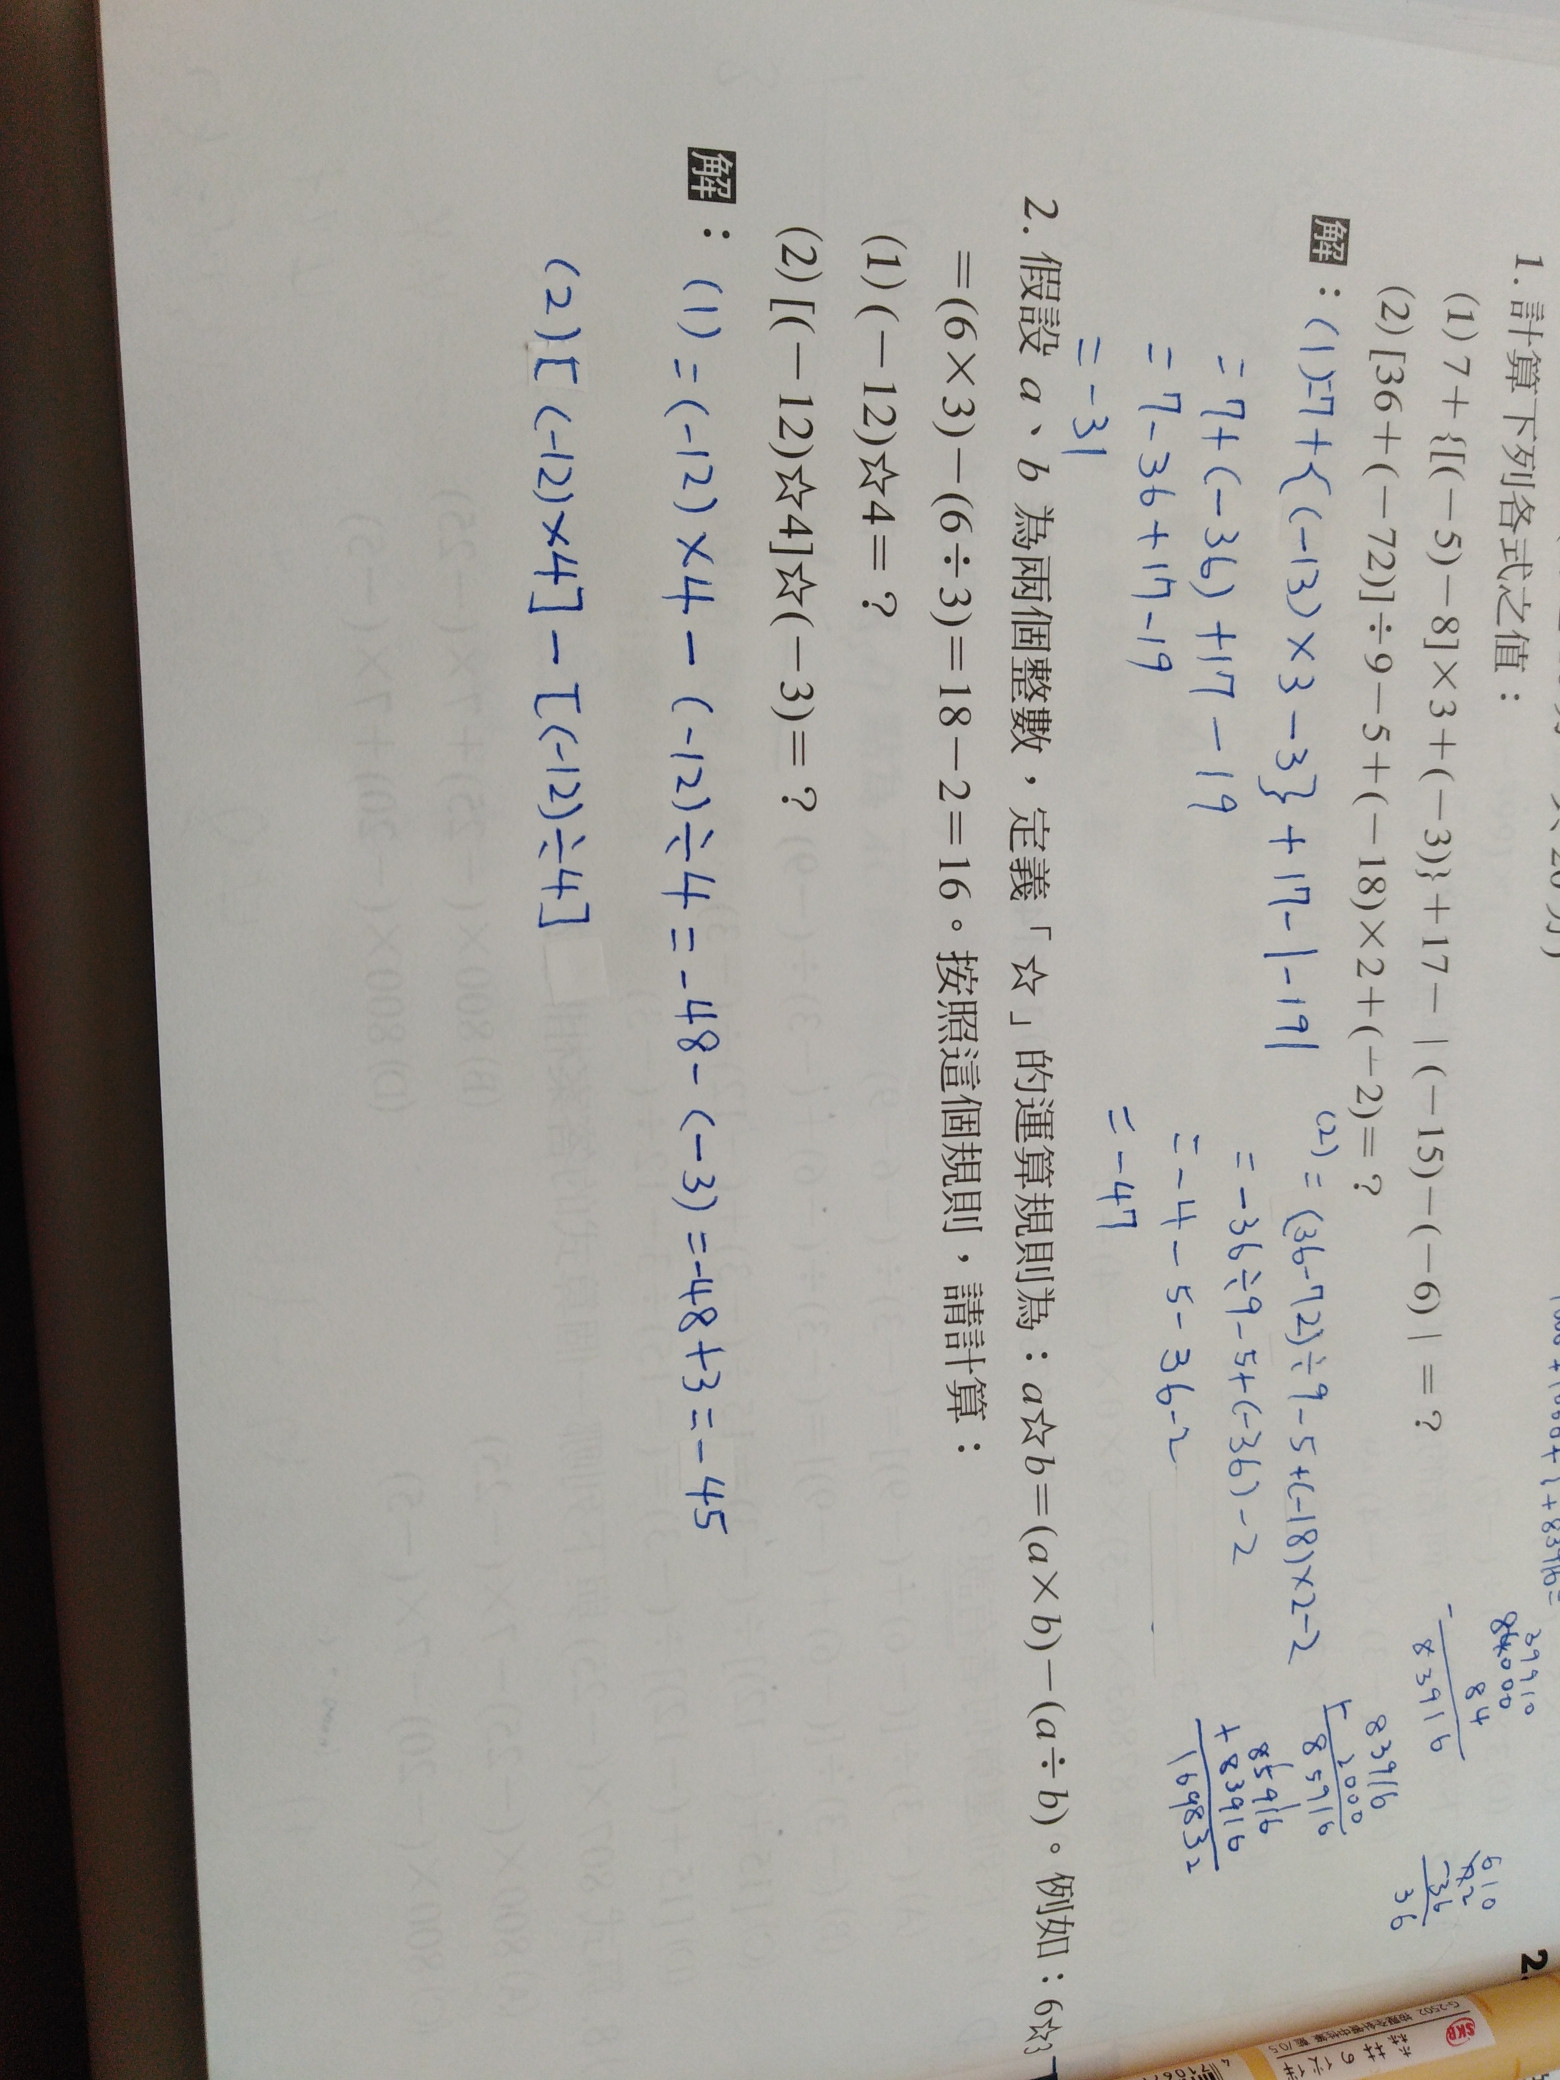 1. 計算下列各式之值：
(1) 7＋{[(－5)－8]×3＋(－3)}＋17－|(－15)－(－6)|＝？
(2) [36＋(－72)]÷9－5＋(－18)×2＋(－2)＝？
解：(1)=7+{(-13)×3-3}+17-|-19|
=7+(-36)+17-19
=7-36+17-19
=-31
(2)=(36-72)÷9-5+(-18)×2-2
=-36÷9-5+(-36)-2
=-4-5-36-2
=-47
39910
84000
84
- 83916
83916
+ 2000
85916
85916
+ 83916
169832
610
72
-36
36
2. 假設 a、b 為兩個整數，定義「☆」的運算規則為：a☆b＝(a×b)－(a÷b)。例如：6☆3
＝(6×3)－(6÷3)＝18－2＝16。按照這個規則，請計算：
(1) (－12)☆4＝？
(2) [(－12)☆4]☆(－3)＝？
解：(1)=(-12)×4-(-12)÷4=-48-(-3)=-48+3=-45
(2)[(-12)×4]-[(-12)÷4]
2.
SKB
G-2502